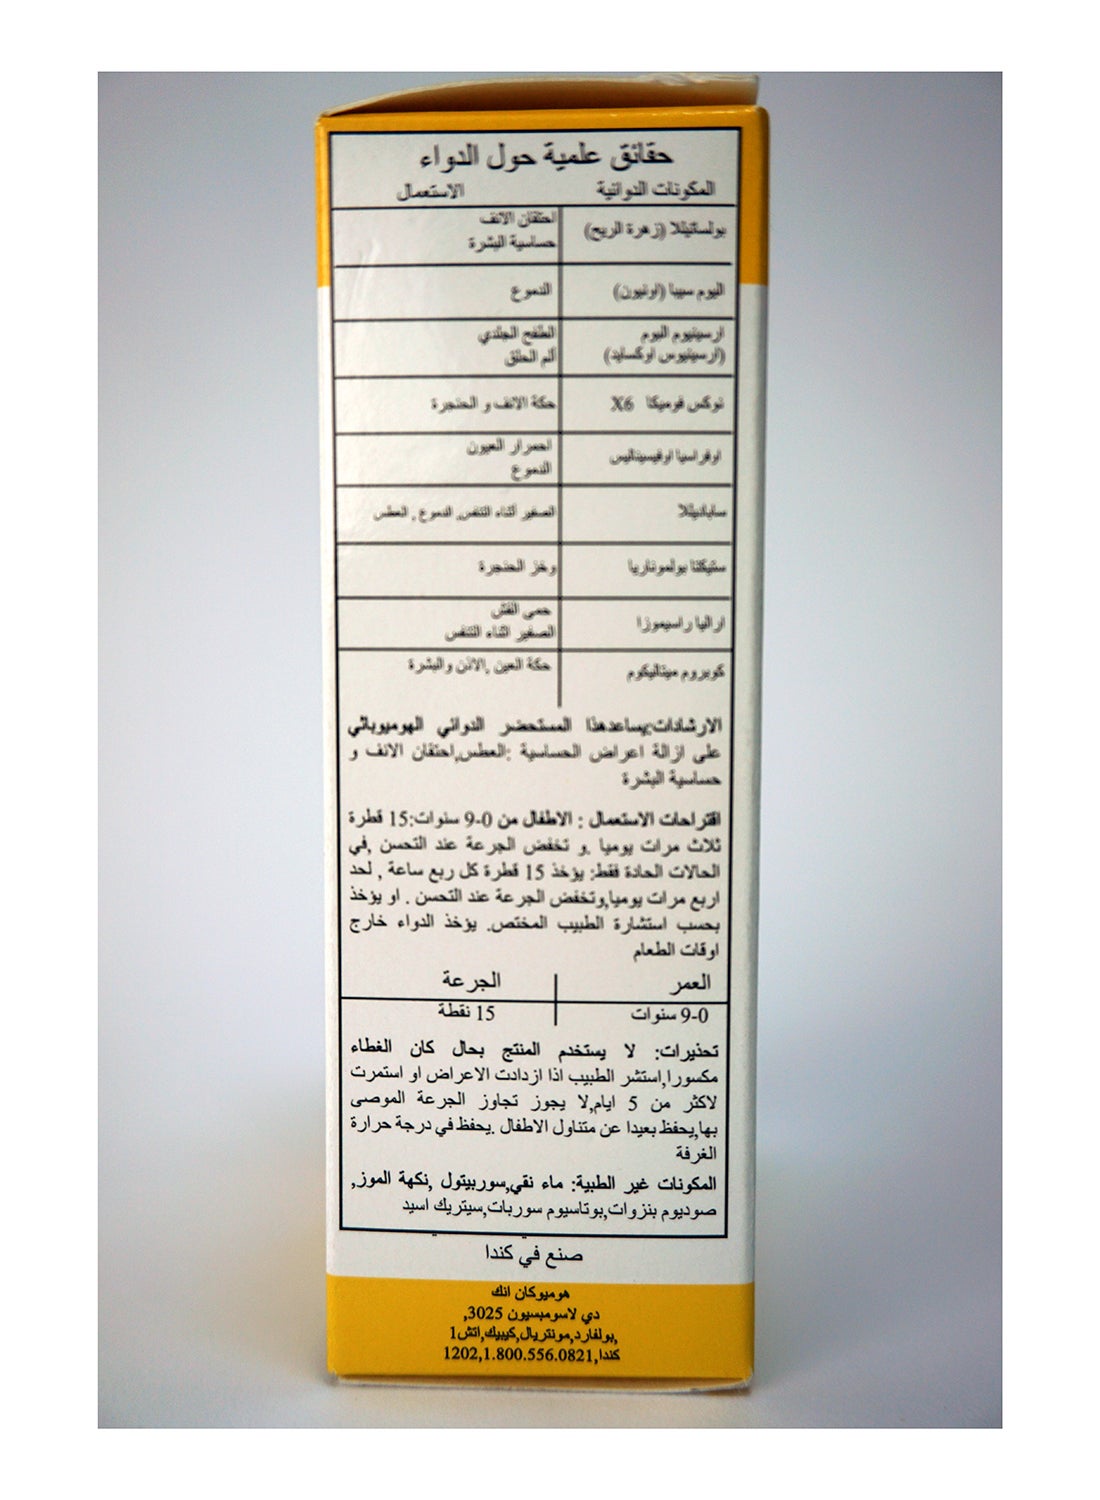 حقائق علمية حول الدواء
المكونات الدوائية الاستعمال
بولساتيللا (زهرة الريح) احتقان الانف
حساسية البشرة
اليوم سيبا (اونيون) الدموع
ارسينيوم اليوم الطفح الجلدي
(ارسينيوس اوكسايد) ألم الحلق
نوكس فوميكا X6 حكة الانف و الحنجرة
اوفراسيا اوفيسيناليس احمرار العيون
الدموع
ساباديللا الصفير أثناء التنفس, الدموع , العطس
ستيكتا بولموناريا وخز الحنجرة
اراليا راسيموزا حمى القش
الصفير اثناء التنفس
كوبروم ميتاليكوم حكة العين ,الاذن والبشرة
الارشادات:يساعدهذا المستحضر الدوائي الهوميوباثي
على ازالة اعراض الحساسية :العطس,احتقان الانف و
حساسية البشرة
اقتراحات الاستعمال : الاطفال من 0-9 سنوات:15 قطرة
ثلاث مرات يوميا .و تخفض الجرعة عند التحسن ,في
الحالات الحادة فقط: يؤخذ 15 قطرة كل ربع ساعة , لحد
اربع مرات يوميا,وتخفض الجرعة عند التحسن . او يؤخذ
بحسب استشارة الطبيب المختص. يؤخذ الدواء خارج
اوقات الطعام
العمر الجرعة
0-9 سنوات 15 نقطة
تحذيرات: لا يستخدم المنتج بحال كان الغطاء
مكسورا,استشر الطبيب اذا ازدادت الاعراض او استمرت
لاكثر من 5 ايام,لا يجوز تجاوز الجرعة الموصى
بها,يحفظ بعيدا عن متناول الاطفال .يحفظ في درجة حرارة
الغرفة
المكونات غير الطبية: ماء نقي,سوربيتول ,نكهة الموز,
صوديوم بنزوات,بوتاسيوم سوربات,سيتريك اسيد
صنع في كندا
هوميوكان انك
دي لاسومبسيون 3025,
,بولفارد,مونتريال,كيبيك,اتش1
كندا,1202,1.800.556.0821